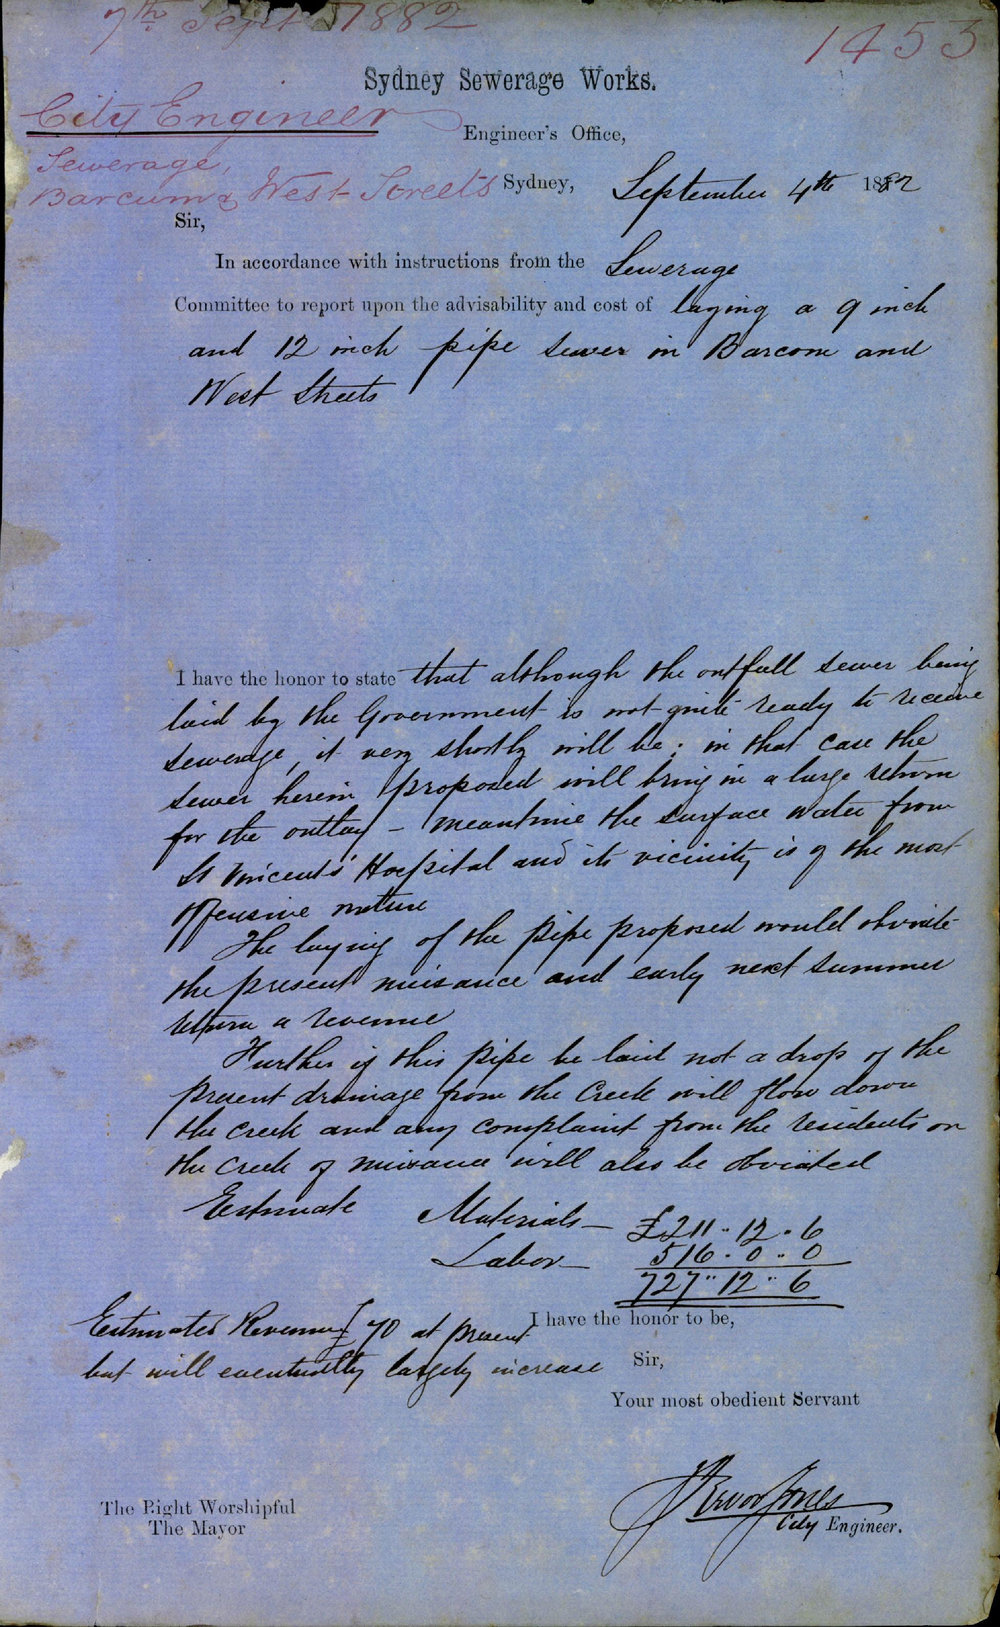 7th Sept 1882
1453
Sydney Sewerage Works.
City Engineer
Engineer's Office,
Sewerage,
Barcum & West Streets
Sydney, September 4th 1882
Sir,
In accordance with instructions from the Sewerage
Committee to report upon the advisability and cost of laying a 9 inch
and 12 inch pipe sewer in Barcom and
West Streets
I have the honor to state that although the outfall sewer being
laid by the Government is not quite ready to receive
sewerage, it very shortly will be; in that case the
sewer herein proposed will bring in a large return
for the outlay - meantime the surface water from
St Vincents' Hospital and its vicinity is of the most
offensive nature
The laying of the pipe proposed would obviate
the present nuisance and early next summer
return a revenue
Further if this pipe be laid not a drop of the
present drainage from the Creek will flow down
the creek and any complaint from the residents on
the Creek of nuisance will also be obviated
Estimate Materials - £211..12..6
Labor - 516..0..0
727..12..6
Estimated Revenue £70 at present
but will eventually largely increase
I have the honor to be,
Sir,
Your most obedient Servant
Trevor Jones
City Engineer.
The Right Worshipful
The Mayor